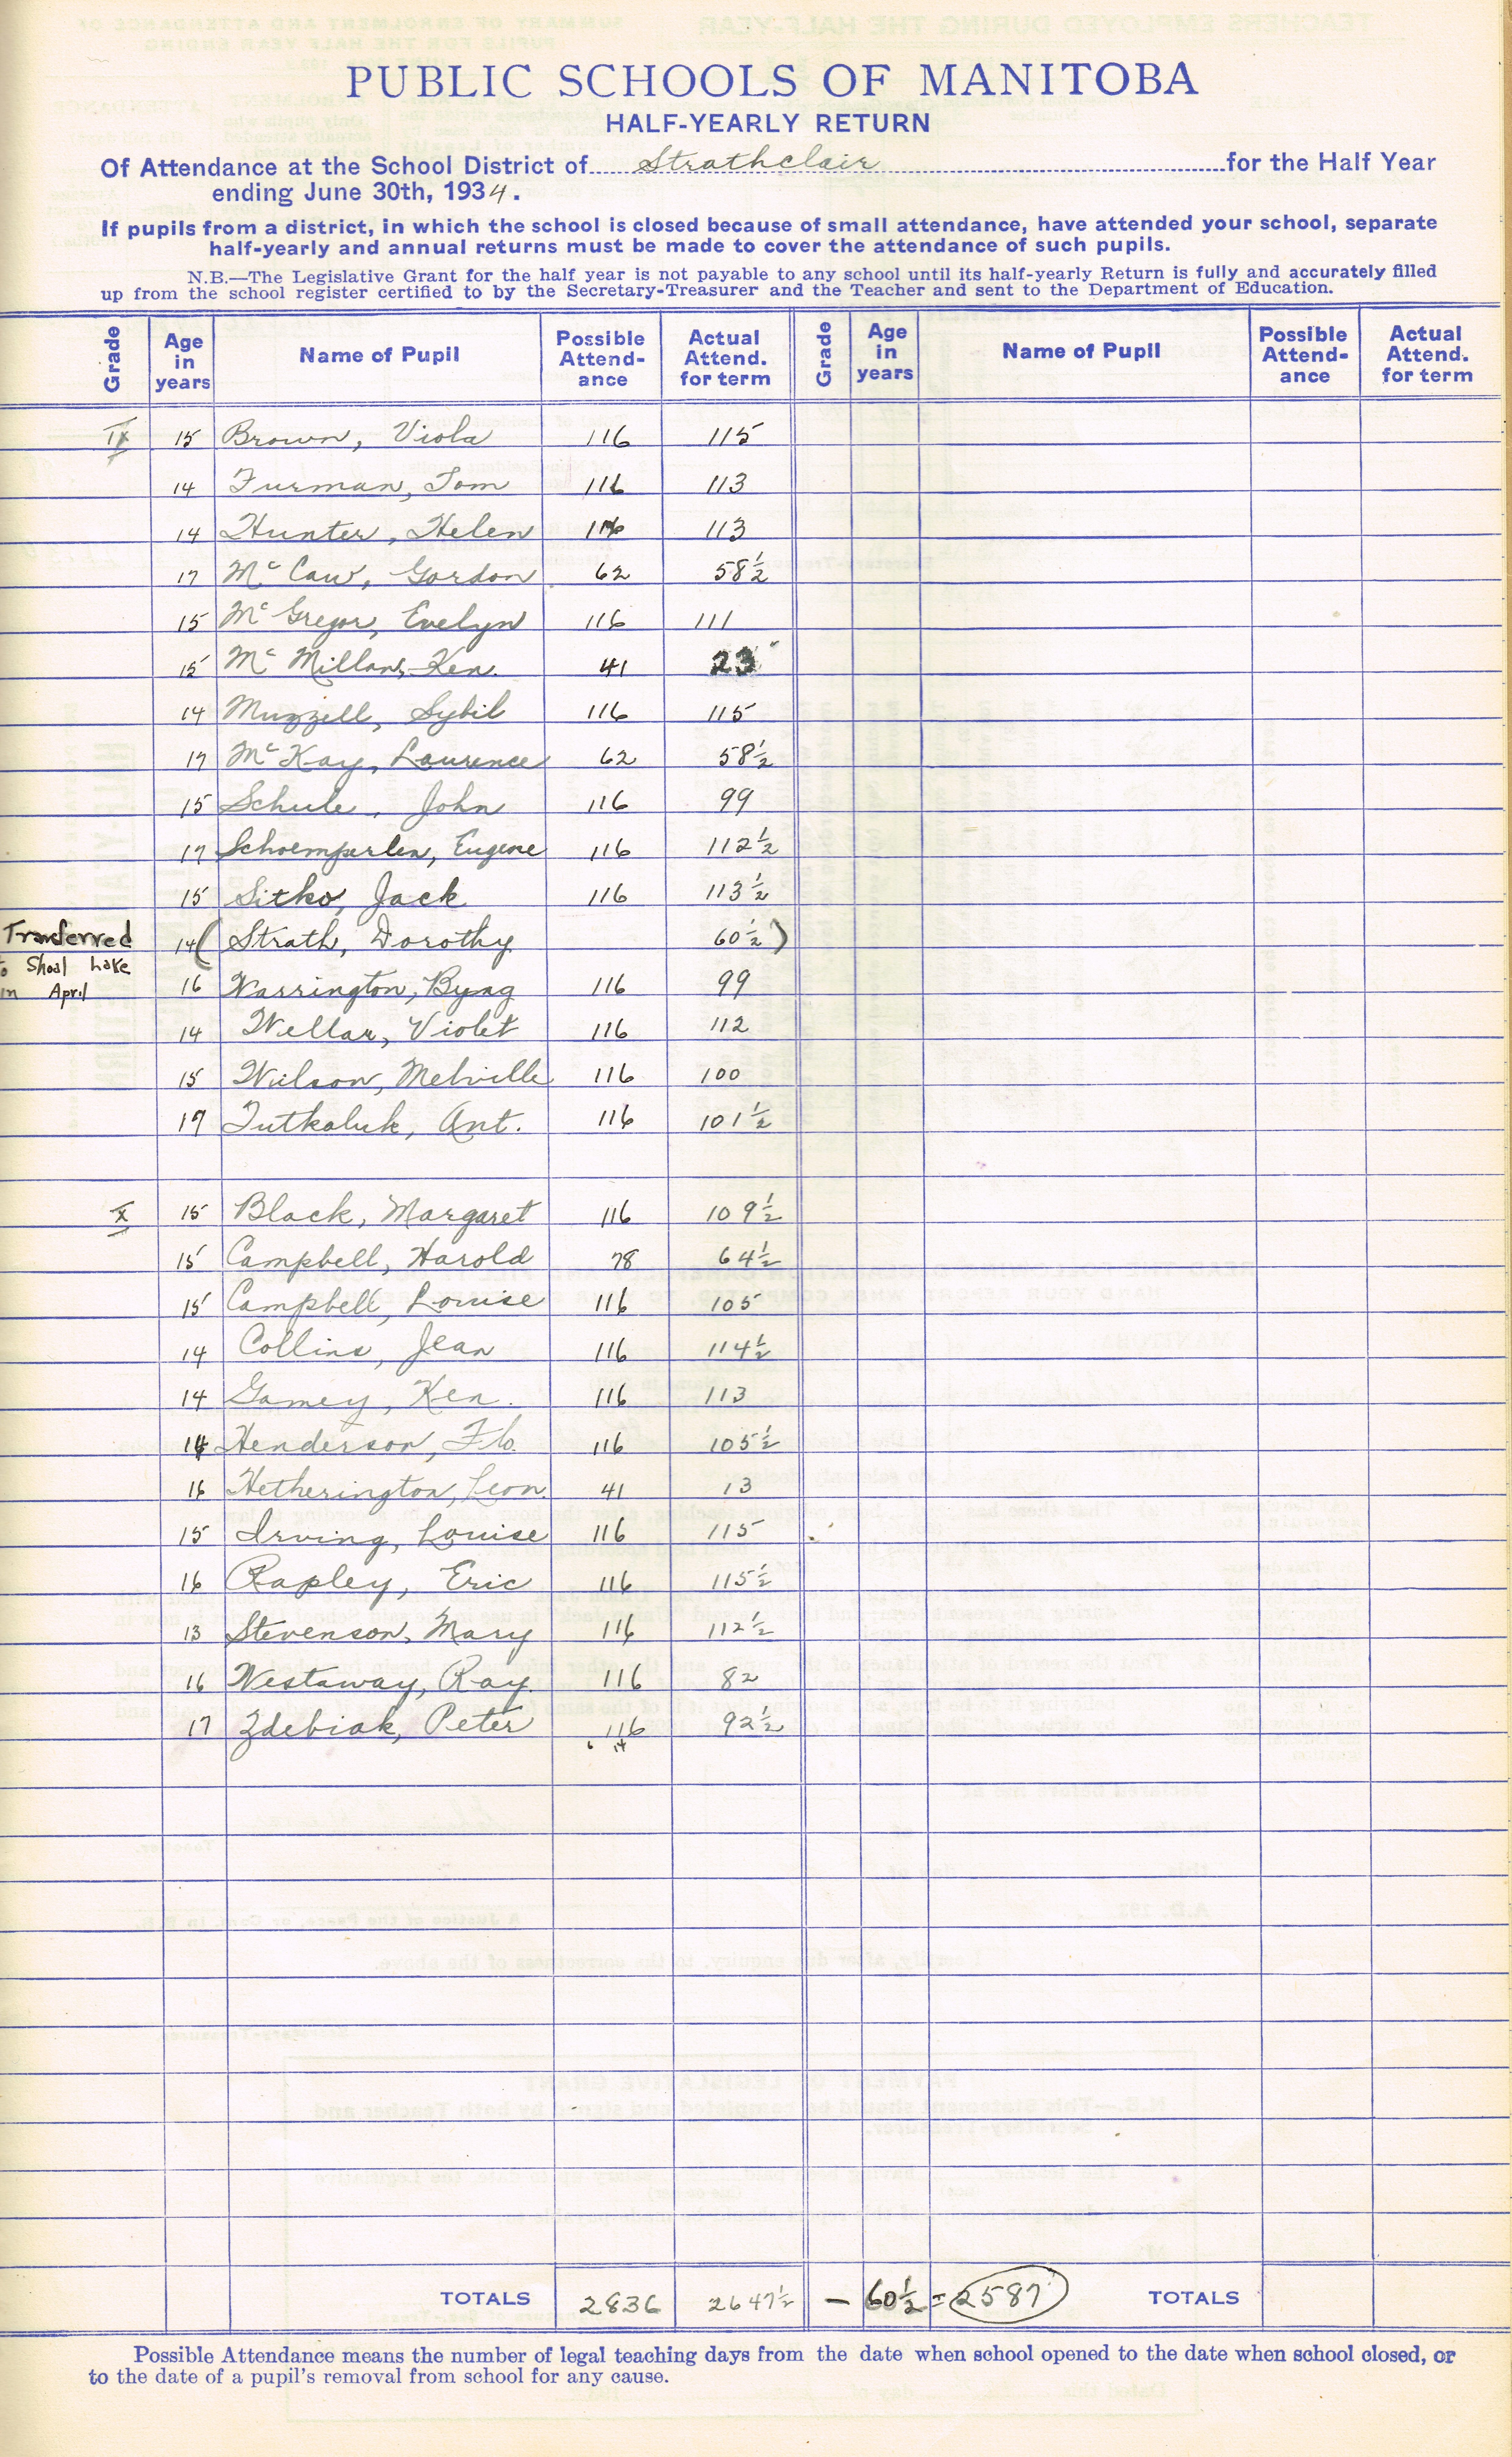 PUBLIC SCHOOLS OF MANITOBA
HALF-YEARLY RETURN
Of Attendance at the School District of Strathclair for the Half Year
ending June 30th, 1934.
If pupils from a district, in which the school is closed because of small attendance, have attended your school, separate
half-yearly and annual returns must be made to cover the attendance of such pupils.
N.B.—The Legislative Grant for the half year is not payable to any school until its half-yearly Return is fully and accurately filled
up from the school register certified to by the Secretary-Treasurer and the Teacher and sent to the Department of Education.
Grade Age in years Name of Pupil Possible Attend-ance Actual Attend. for term Grade Age in years Name of Pupil Possible Attend-ance Actual Attend. for term
IX 15 Brown, Viola 116 115
14 Furman, Tom 116 113
14 Hunter, Helen 116 113
17 McCaw, Gordon 62 58½
15 McGregor, Evelyn 116 111
15 McMillan, Ken. 41 23
14 Muzzell, Sybil 116 115
17 McKay, Laurence 62 58½
15 Schule, John 116 99
17 Schoemperlen, Eugene 116 112½
15 Sitko, Jack 116 113½
Transferred 14 (Strath, Dorothy 60½)
to Shoal Lake
in April 16 Warrington, Byng 116 99
14 Wellar, Violet 116 112
15 Wilson, Melville 116 100
17 Tutkaluk, Ant. 116 101½
X 15 Black, Margaret 116 109½
15 Campbell, Harold 78 64½
15 Campbell, Louise 116 105
14 Collins, Jean 116 114½
14 Gamey, Ken. 116 113
14 Henderson, Flo. 116 105½
16 Hetherington, Leon. 41 13
15 Irving, Louise 116 115
16 Rapley, Eric 116 115½
13 Stevenson, Mary 116 112½
16 Westaway, Ray. 116 82
17 Zdebiak, Peter 116 92½
TOTALS 2836 2647½ — 60½ = 2587 TOTALS
Possible Attendance means the number of legal teaching days from the date when school opened to the date when school closed, or
to the date of a pupil's removal from school for any cause.